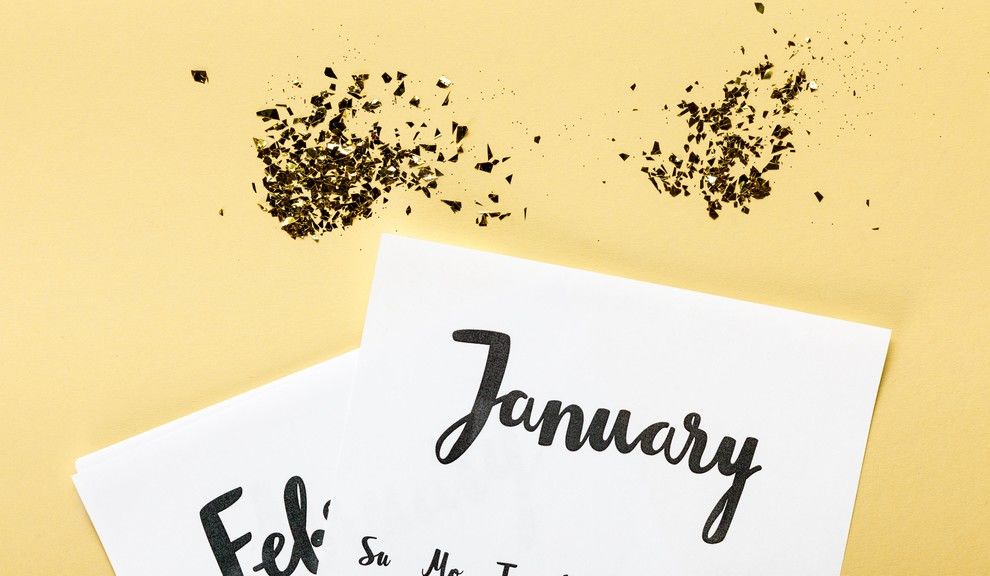 January
Feb
Su Mo